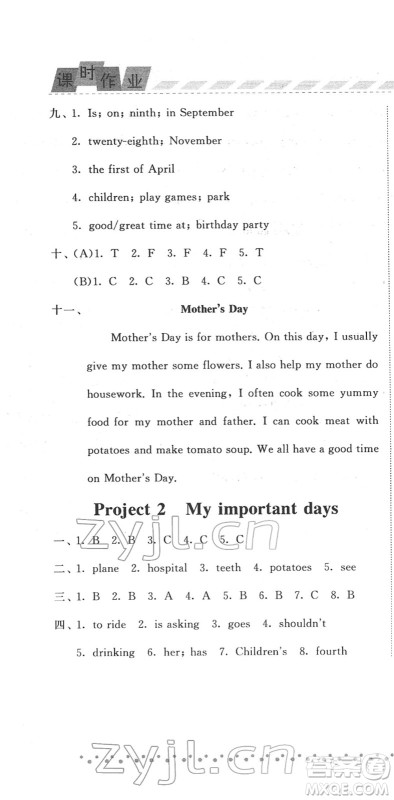 课时作业
九、1. Is; on; ninth; in September
2. twenty-eighth; November
3. the first of April
4. children; play games; park
5. good/great time at; birthday party
十、(A)1. T 2. F 3. F 4. F 5. T
(B)1. C 2. C 3. B 4. C 5. C
十一、 Mother's Day
Mother's Day is for mothers. On this day, I usually
give my mother some flowers. I also help my mother do
housework. In the evening, I often cook some yummy
food for my mother and father. I can cook meat with
potatoes and make tomato soup. We all have a good time
on Mother's Day.
Project 2 My important days
一、1. B 2. B 3. C 4. C 5. C
二、1. plane 2. hospital 3. teeth 4. potatoes 5. see
三、1. B 2. B 3. A 4. A 5. C 6. C 7. C 8. B
四、1. to ride 2. is asking 3. goes 4. shouldn't
5. drinking 6. her; has 7. Children's 8. fourth
zyjl.cn
zyjl.cn
zyjl.cn
答案圈
MXQE.COM